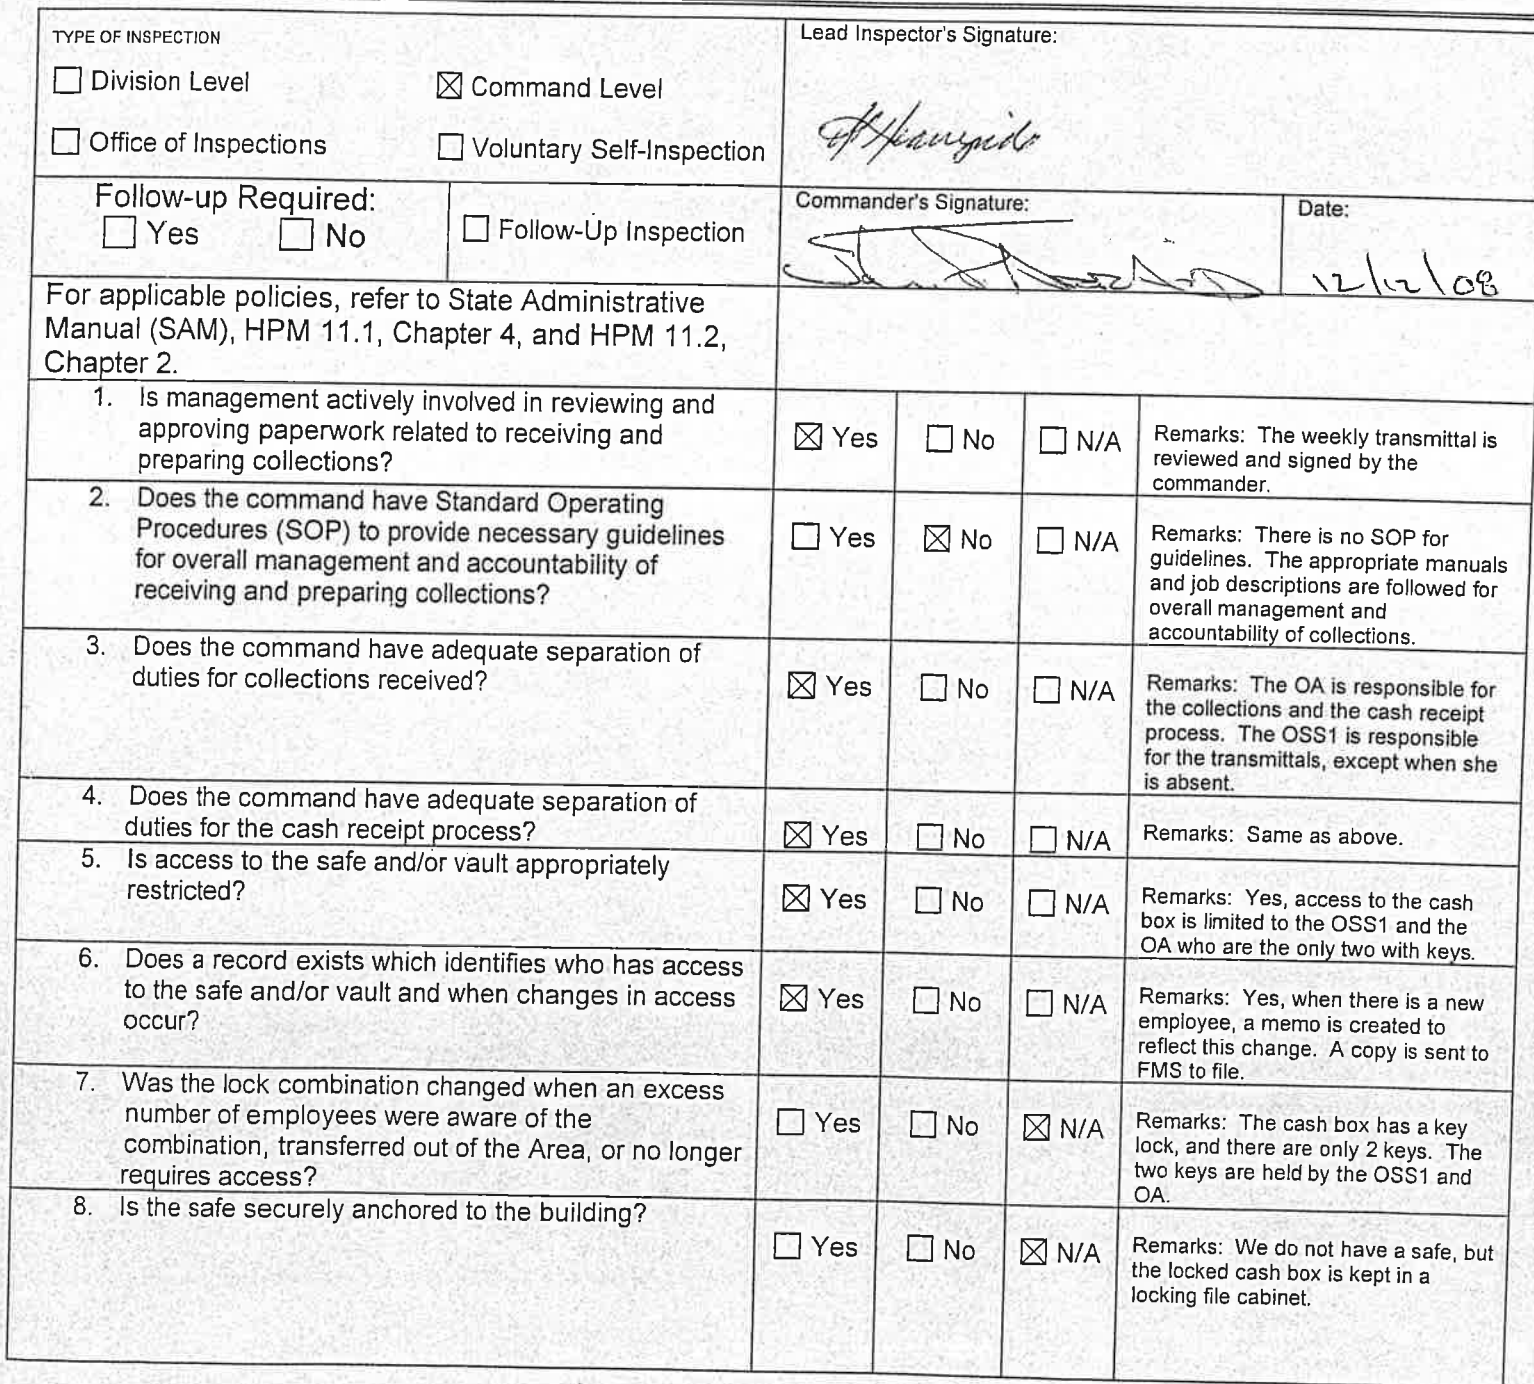 TYPE OF INSPECTION
☐ Division Level ☒ Command Level
☐ Office of Inspections ☐ Voluntary Self-Inspection
Lead Inspector's Signature:
Follow-up Required:
☐ Yes ☐ No
☐ Follow-Up Inspection
Commander's Signature:
Date:
12/12/08
For applicable policies, refer to State Administrative
Manual (SAM), HPM 11.1, Chapter 4, and HPM 11.2,
Chapter 2.
1. Is management actively involved in reviewing and
approving paperwork related to receiving and
preparing collections?
☒ Yes ☐ No ☐ N/A
Remarks: The weekly transmittal is
reviewed and signed by the
commander.
2. Does the command have Standard Operating
Procedures (SOP) to provide necessary guidelines
for overall management and accountability of
receiving and preparing collections?
☐ Yes ☒ No ☐ N/A
Remarks: There is no SOP for
guidelines. The appropriate manuals
and job descriptions are followed for
overall management and
accountability of collections.
3. Does the command have adequate separation of
duties for collections received?
☒ Yes ☐ No ☐ N/A
Remarks: The OA is responsible for
the collections and the cash receipt
process. The OSS1 is responsible
for the transmittals, except when she
is absent.
4. Does the command have adequate separation of
duties for the cash receipt process?
☒ Yes ☐ No ☐ N/A
Remarks: Same as above.
5. Is access to the safe and/or vault appropriately
restricted?
☒ Yes ☐ No ☐ N/A
Remarks: Yes, access to the cash
box is limited to the OSS1 and the
OA who are the only two with keys.
6. Does a record exists which identifies who has access
to the safe and/or vault and when changes in access
occur?
☒ Yes ☐ No ☐ N/A
Remarks: Yes, when there is a new
employee, a memo is created to
reflect this change. A copy is sent to
FMS to file.
7. Was the lock combination changed when an excess
number of employees were aware of the
combination, transferred out of the Area, or no longer
requires access?
☐ Yes ☐ No ☒ N/A
Remarks: The cash box has a key
lock, and there are only 2 keys. The
two keys are held by the OSS1 and
OA.
8. Is the safe securely anchored to the building?
☐ Yes ☐ No ☒ N/A
Remarks: We do not have a safe, but
the locked cash box is kept in a
locking file cabinet.